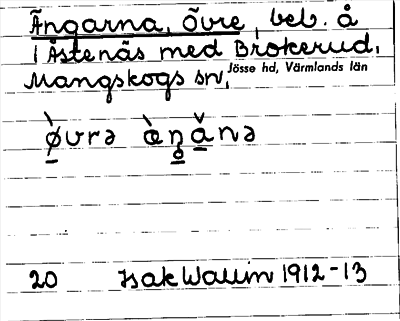 Ängarna, Övre, beb. å
1 Åstenäs med Brokerud,
Mangskogs sn,
Jösse hd, Värmlands län
ø̀vrə æ̀ŋånə
20 Isak Wallin 1912-13